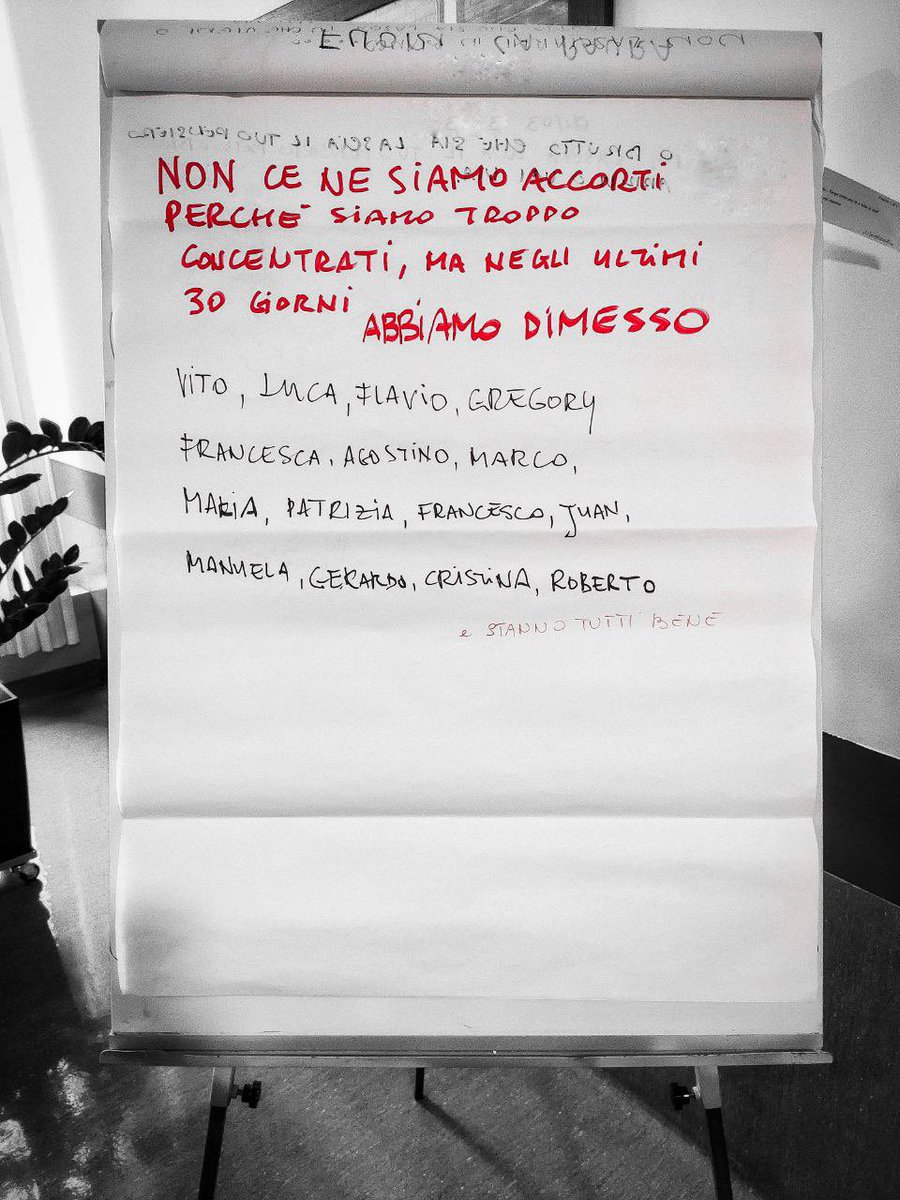 NON CE NE SIAMO ACCORTI
PERCHÈ SIAMO TROPPO
CONCENTRATI, MA NEGLI ULTIMI
30 GIORNI ABBIAMO DIMESSO
VITO, LUCA, FLAVIO, GREGORY
FRANCESCA, AGOSTINO, MARCO,
MARIA, PATRIZIA, FRANCESCO, JUAN,
MANUELA, GERARDO, CRISTINA, ROBERTO
e STANNO TUTTI BENE